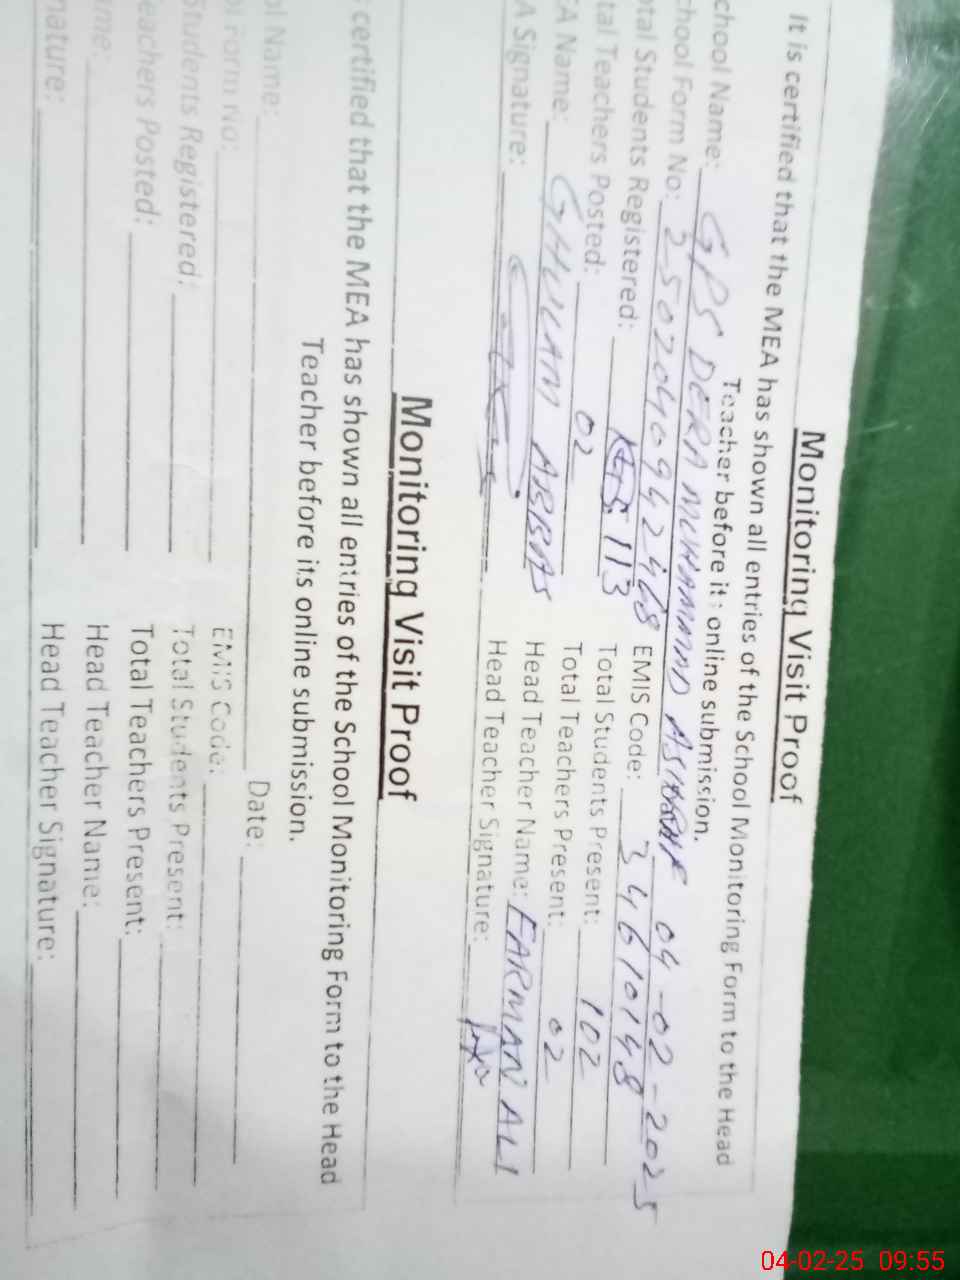 Monitoring Visit Proof
It is certified that the MEA has shown all entries of the School Monitoring Form to the Head
Teacher before its online submission.
chool Name: GPS DERA MUHAMMAD ASHRAF 04-02-2025
chool Form No: 2502040942468 EMIS Code: 34610148
otal Students Registered: 113 Total Students Present: 102
tal Teachers Posted: 02 Total Teachers Present: 02
EA Name: GHULAM ABBAS Head Teacher Name: FARMAN ALI
A Signature: Head Teacher Signature:
Monitoring Visit Proof
certified that the MEA has shown all entries of the School Monitoring Form to the Head
Teacher before its online submission.
ol Name: Date:
ol Form No: EMIS Code:
Students Registered: Total Students Present:
eachers Posted: Total Teachers Present:
ame: Head Teacher Name:
nature: Head Teacher Signature:
04-02-25 09:55